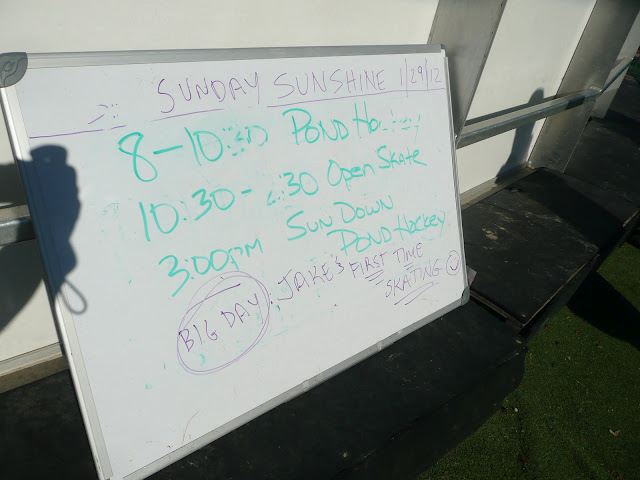 SUNDAY SUNSHINE 1/29/12
8-10:30 POND Hockey
10:30 - 2:30 Open Skate
3:00PM SUN DOWN
POND HOCKEY
BIG DAY: JAKE'S FIRST TIME
SKATING ☺